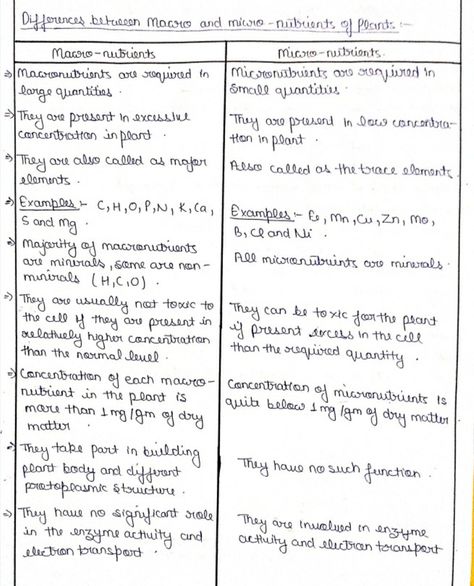 Differences between Macro and micro-nutrients of Plants :-
Macro-nutrients
Micro-nutrients.
⇒ Macronutrients are required in
large quantities.
Micronutrients are required in
small quantities.
⇒ They are present in excessful
concentration in plant.
They are present in low concentra-
tion in plant.
⇒ They are also called as major
elements.
Also called as the trace elements.
⇒ Examples :- C, H, O, P, N, K, Ca,
S and Mg.
Examples :- Fe, Mn, Cu, Zn, Mo,
B, Cl and Ni.
⇒ Majority of macronutrients
are minirals, some are non-
minirals (H, C, O).
All micronutrients are minerals.
⇒ They are usually not toxic to
the cell if they are present in
relatively higher concentration
than the normal level.
They can be toxic for the plant
if present excess in the cell
than the required quantity.
⇒ Concentration of each macro-
nutrient in the plant is
more than 1 mg/gm of dry
matter.
Concentration of micronutrients is
quite below 1 mg/gm of dry matter
⇒ They take part in building
plant body and different
protoplasmic structure.
They have no such function.
⇒ They have no significant role
in the enzyme activity and
electron transport.
They are involved in enzyme
activity and electron transport